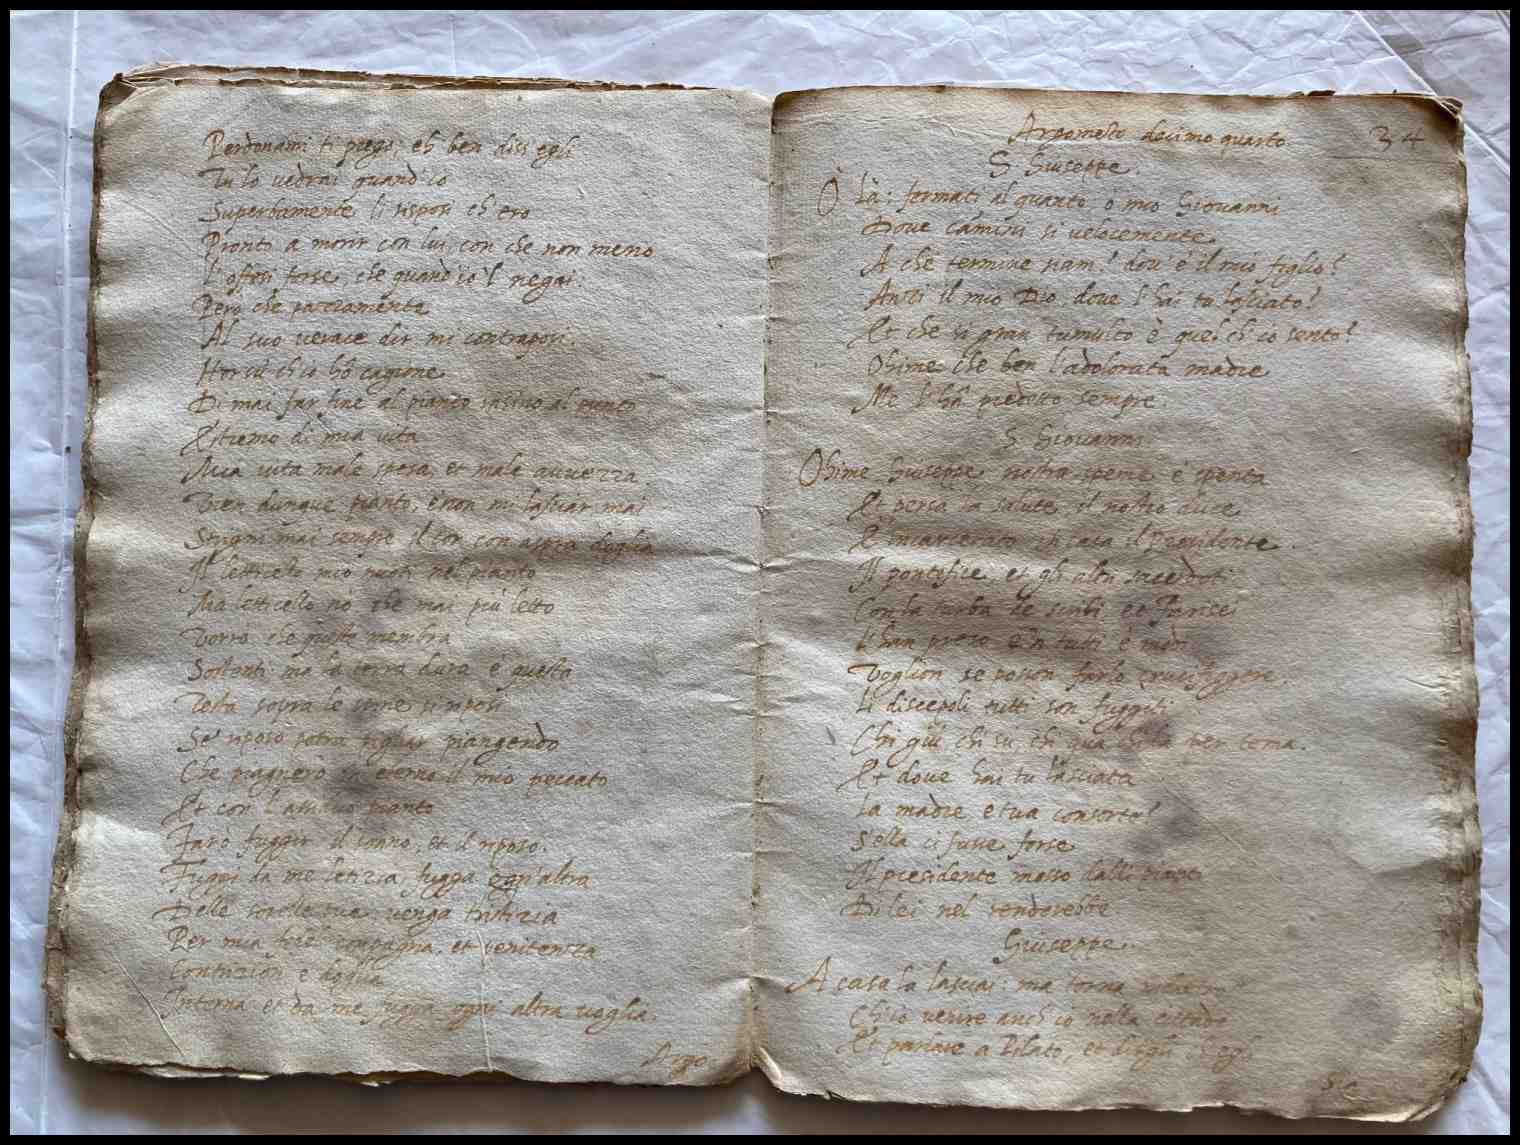 Perdonami ti prego, eh ben diss'egli
Tu lo vedrai quand'io
Superbamente li risposi ch'ero
Pronto a morir con lui, con che non meno
L'offesi forse, che quand'io'l negai.
Però che pazzamente
Al suo verace dir mi contraposi.
Horsù ch'io hò cagione
Di mai far fine al pianto insino al punto
Estremo di mia vita
Mia vita male spesa, et male avvezza
Vien dunque pianto, e non mi lasciar mai
Stringi mai sempre il cor con aspra doglia
Il letticelo mio nuoti nel pianto
Ma letticello nò che mai più letto
Vorrò che queste membra
Sostenti: ma la terra dura e questa
Testa sopra le si riposi
Se riposo potrò pigliar piangendo
Che piagnerò in eterno il mio peccato
Et con l'assiduo pianto
Farò fuggir il sonno, et il riposo.
Fuggi da me letizia, fugga ogn'altra
Delle sorelle tue, venga tristizia
Per mia compagna, et penitenza
Contrizion e doglia
Interna et da me fugga ogni altra voglia.
Argo
Argomēto decimo quarto 34
S Giuseppe.
O Là: fermati al quanto ò mio Giovanni
Dove camini si velocemente
A che termine siam? dov'è il mio figlio?
Anzi il mio Dio, dove l'hai tu lasciato?
Et che si gran tumulto è quel ch'io sento?
Ohime che ben l'adolorata madre
Me l'hà predetto sempre.
S Giovanni
Ohime Giuseppe nostra speme è spenta
Et persa la salute, il nostro duce
E incarcerato in casa il Presidente.
Il pontefice et gli altri sacerdoti
Con la turba de scribi et Farisei
L'han preso e'n tutti è modi
Voglion se posson farlo crucifiggere.
Li discepoli tutti son fuggiti
Chi giù chi su, chi qua per tema.
Et dove hai tu lasciata
La madre e tua consorte?
S'ella ci fusse forse
Il presidente mosso dalli pianti
Di lei nel renderebbe
Giuseppe.
A casa la lasciai: ma torna
Ch'io venire anch'io nella
Et parlare a Pilato, et
Se